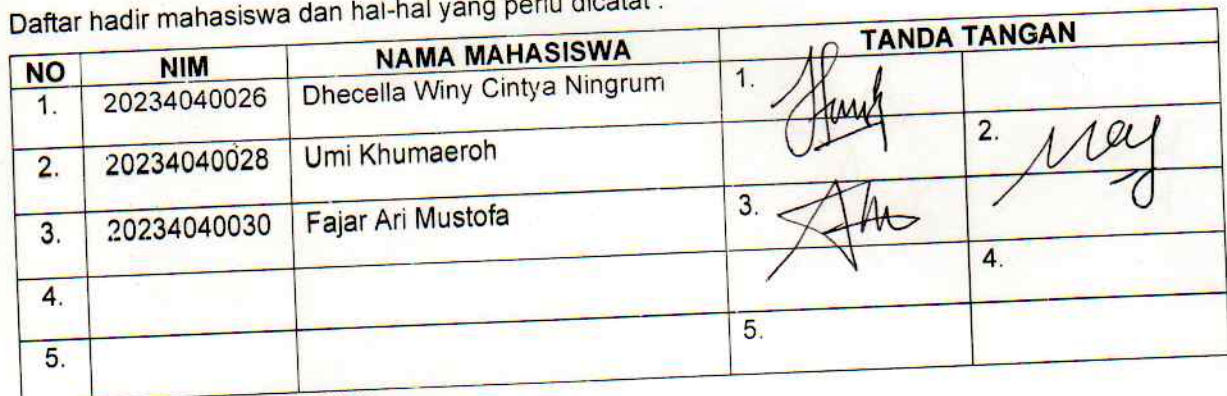 Daftar hadir mahasiswa dan hal-hal yang perlu dicatat :
NO NIM NAMA MAHASISWA TANDA TANGAN
1. 20234040026 Dhecella Winy Cintya Ningrum 1.
2. 20234040028 Umi Khumaeroh 2.
3. 20234040030 Fajar Ari Mustofa 3.
4. 4.
5. 5.